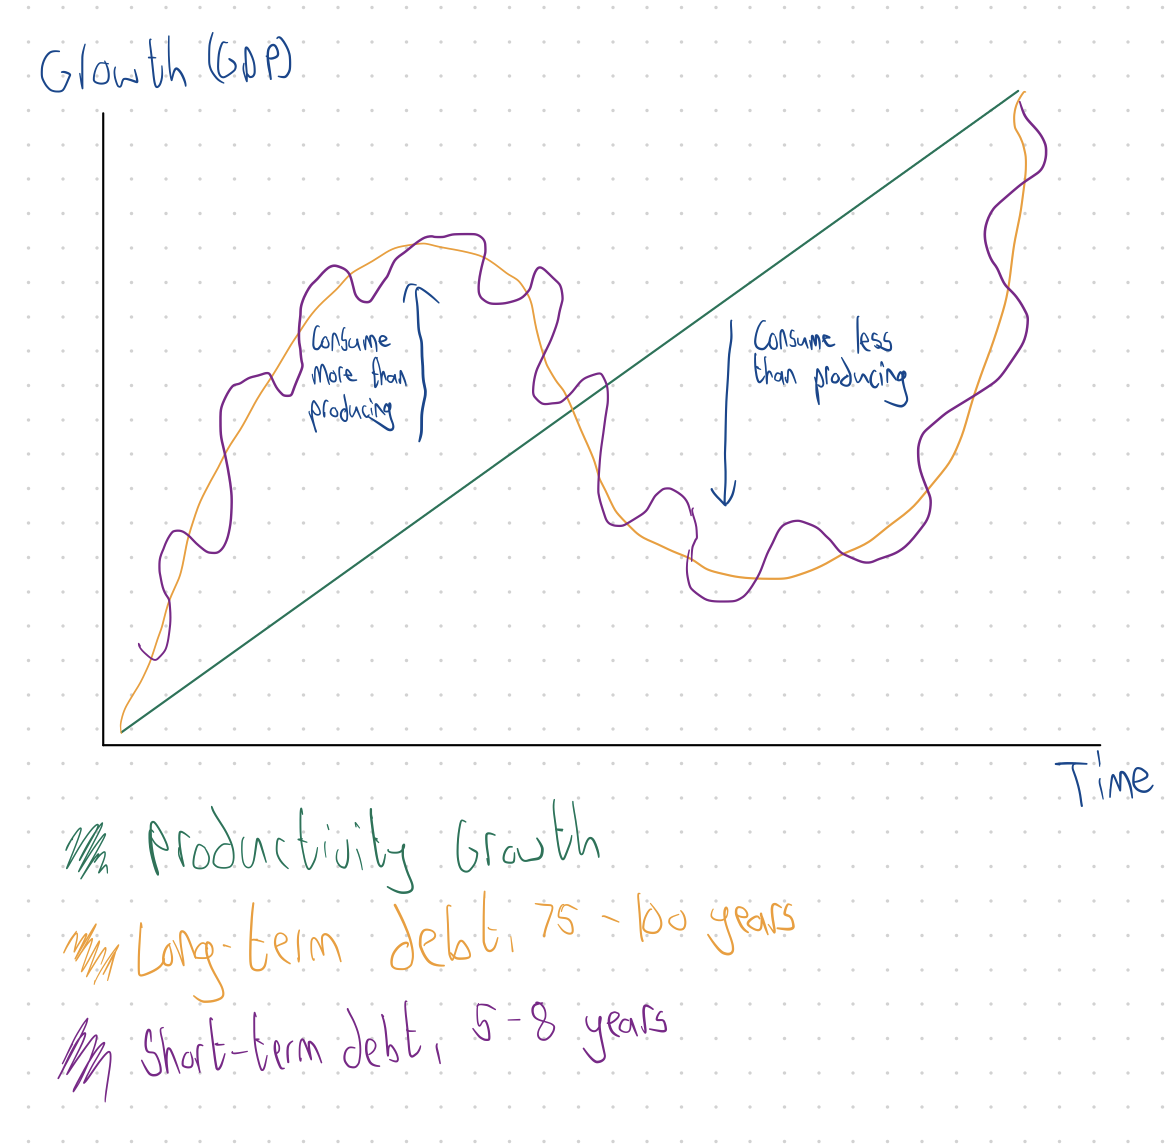 Growth (GDP)
Consume
more than
producing
Consume less
than producing
Time
Productivity Growth
Long-term debt, 75-100 years
Short-term debt, 5-8 years